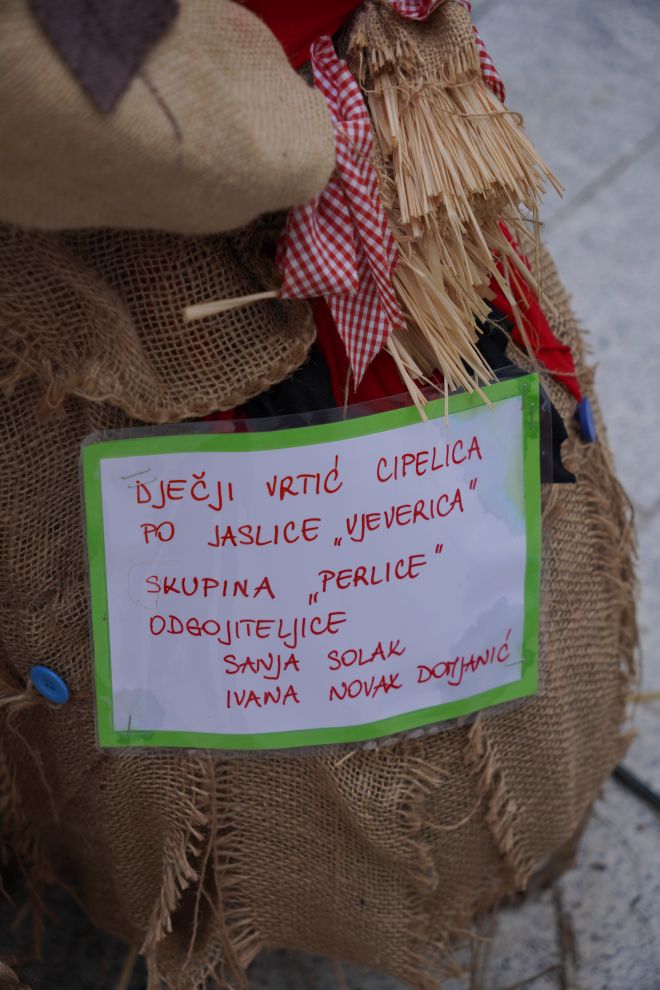 DJEČJI VRTIĆ CIPELICA
PO JASLICE „VJEVERICA"
SKUPINA „PERLICE"
ODGOJITELJICE
SANJA SOLAK
IVANA NOVAK DOMJANIĆ